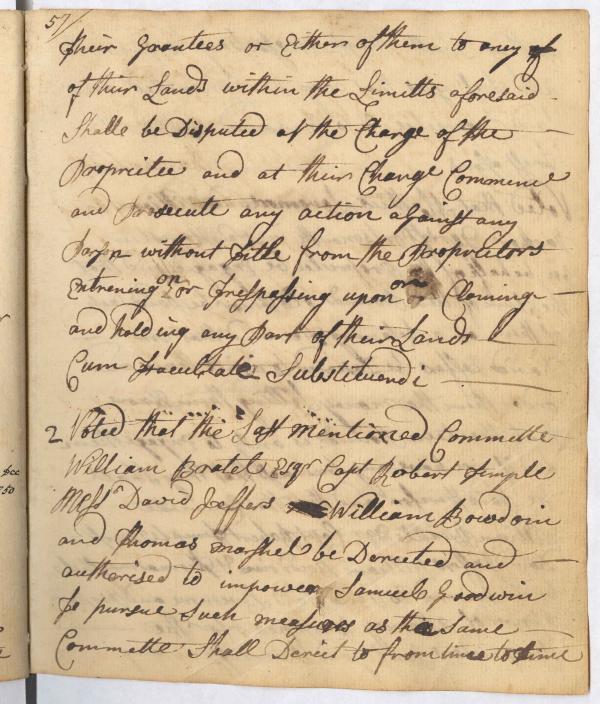 57/
their Grantees or Either of them to aney of
of their Lands within the Limitts aforesaid
Shalle be Disputed at the Charge of the
Propriete and at their Charge Commence
and Prosecute any action against any
Parson without Title from the Proprietors
Entrening on or Trespassing upon or Claming
and holding any Part of their Lands
Cum Facultate Substituendi
2 Voted that the Last mentioned Committe
William Bratel Esqr Capt Robert Temple
Messrs David Jeffers William Bowdoin
and Thomas Marshel be Derected and
autherised to impower Samuel Goodwin
To pursue Such measures as the Same
Committe Shall Derect to from time to time
750